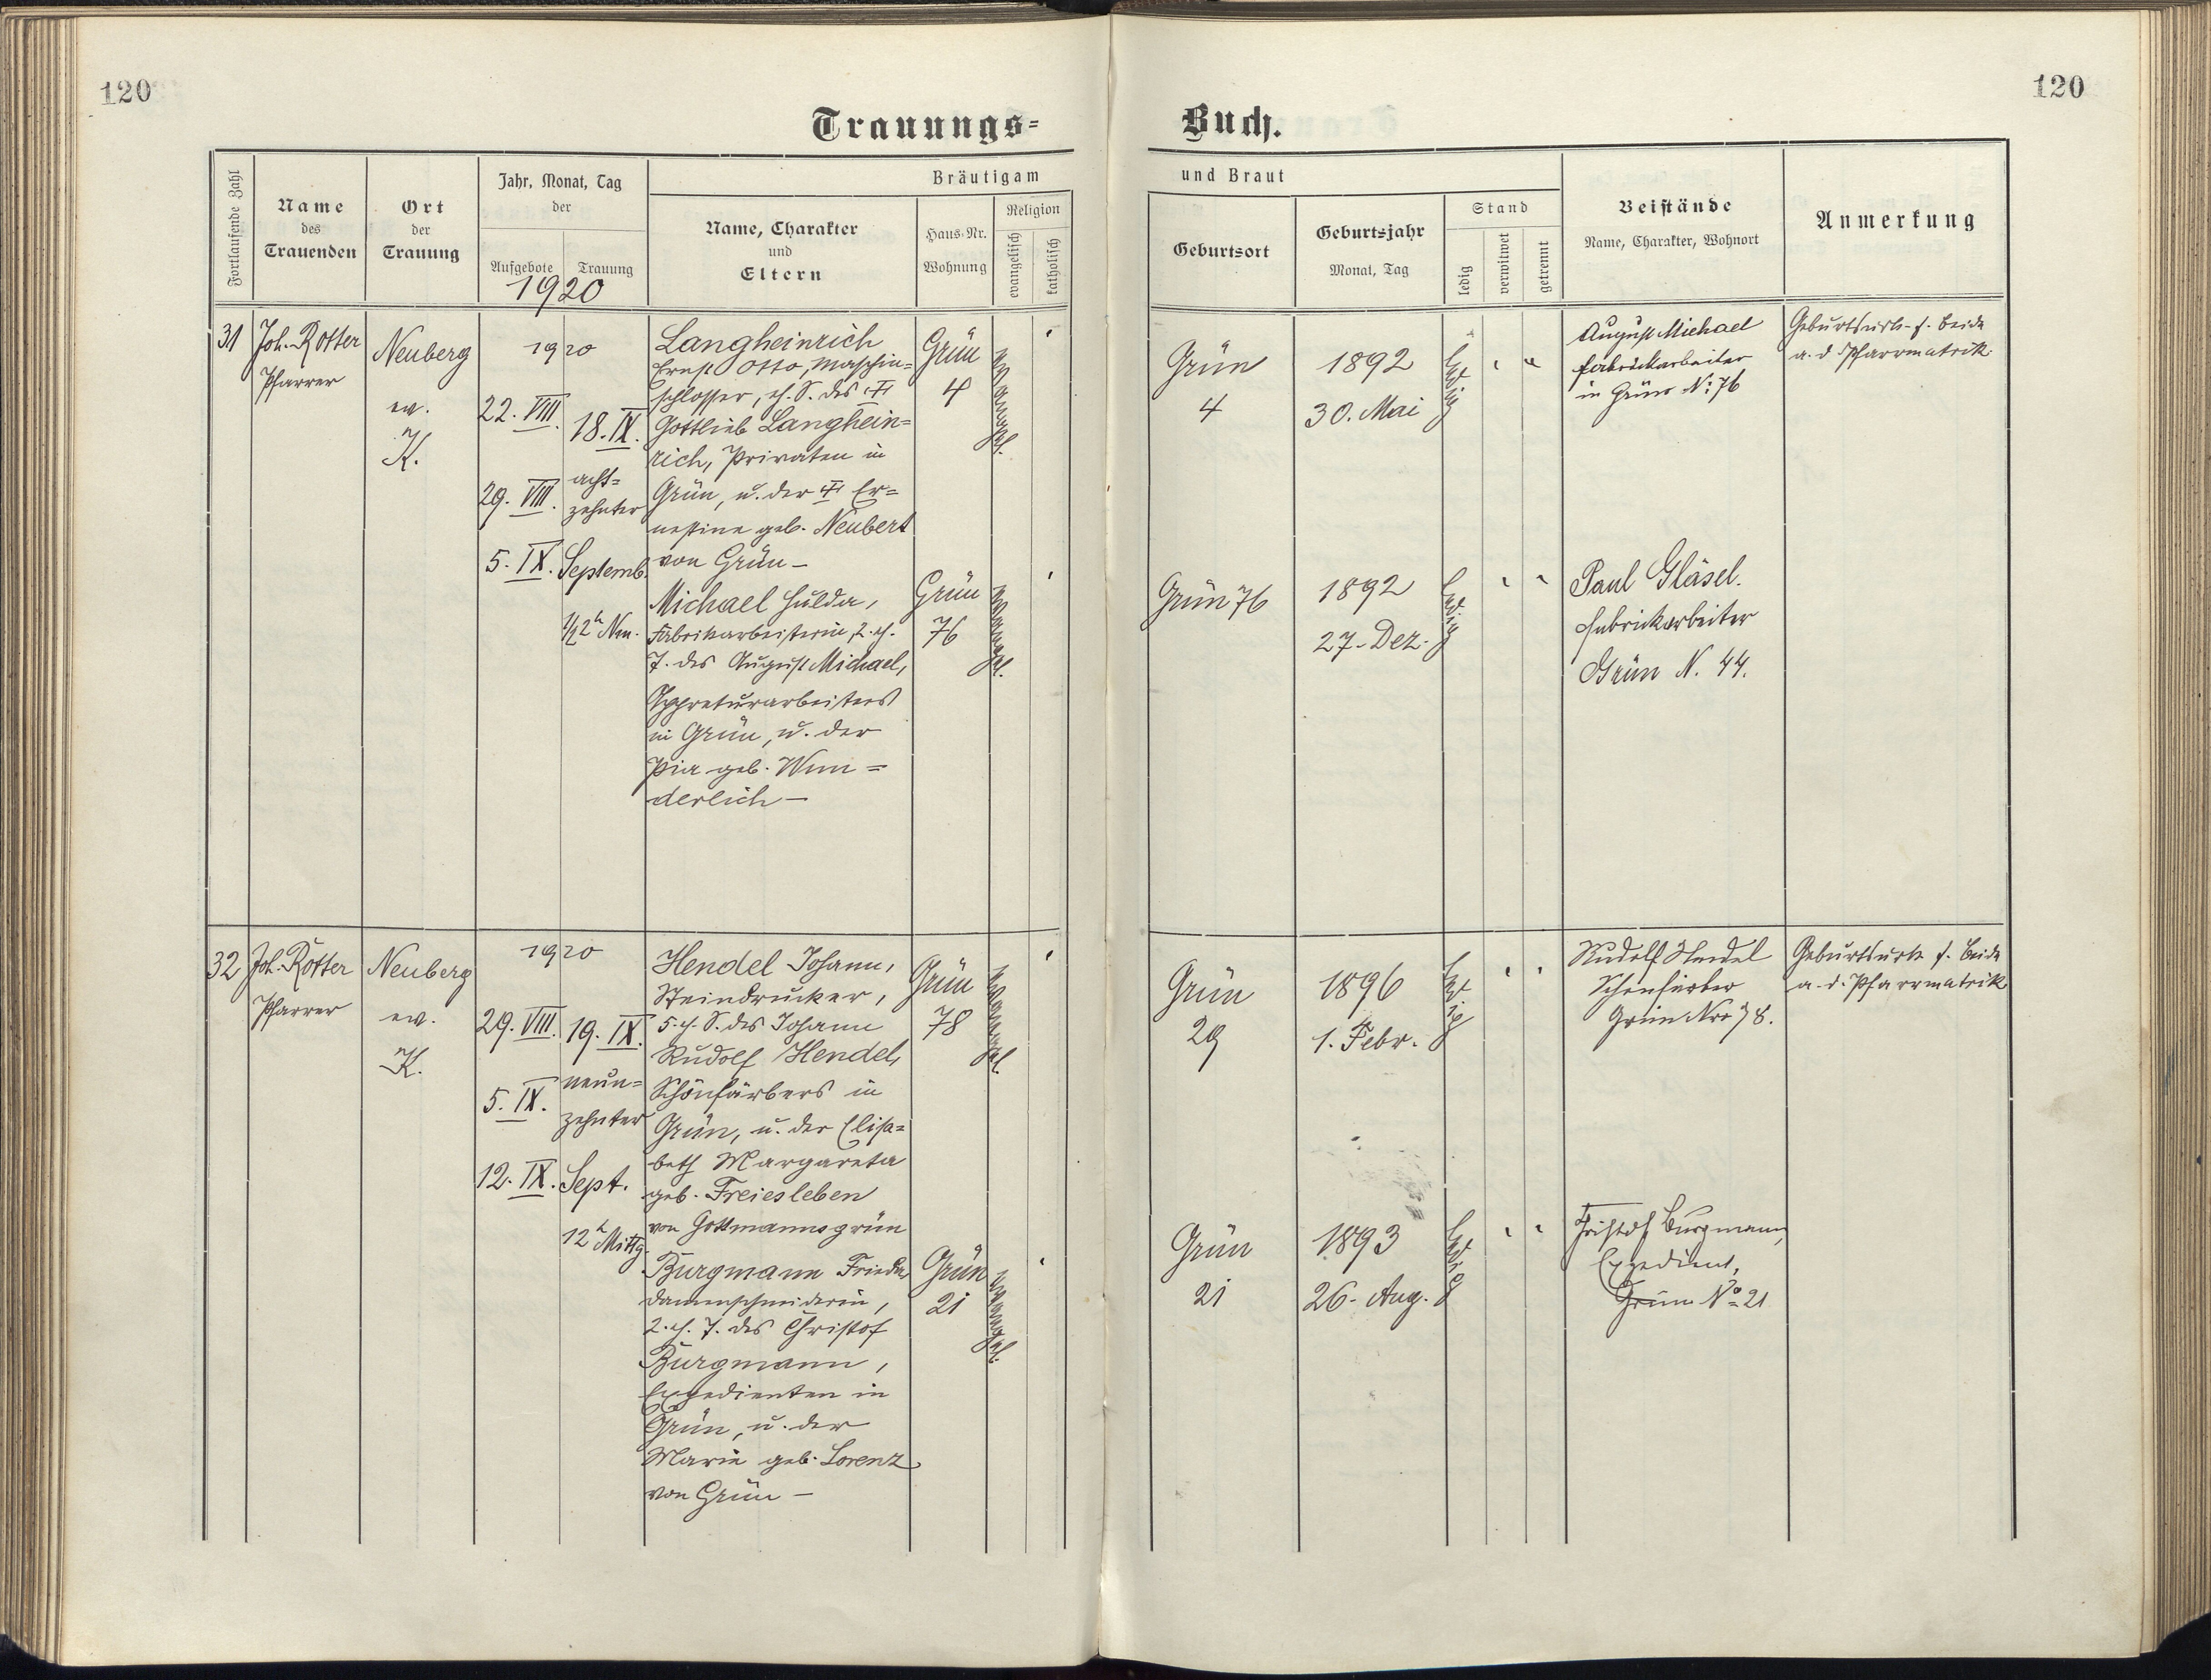 120
120
Trauungs-
Buch.
Fortlaufende Zahl
Name
des
Trauenden
Ort
der
Trauung
Jahr, Monat, Tag
der
Aufgebote
Trauung
1920
Bräutigam
Name, Charakter
und
Eltern
Haus-Nr.
Wohnung
Religion
evangelisch
katholisch
und Braut
Geburtsort
Geburtsjahr
Monat, Tag
Stand
ledig
verwitwet
getrennt
Beistände
Name, Charakter, Wohnort
Anmerkung
31
Joh. Rotter
Pfarrer
Neuberg
ev.
K.
1920
22. VIII.
29. VIII.
5. IX.
18. IX.
acht=
zehnter
Septemb.
1/2 2 h Nm.
Langheinrich
Ernst Otto, Maschin=
schlosser, eh. S. des
Gottlieb Langhein=
rich, Privaten in
Grün, u. der Er=
nestine geb. Neubert
von Grün –
Grün
4
evangel.
Grün
4
1892
30. Mai
ledig
August Michael
Fabrickarbeiter
in Grün No 76
Geburtsurk. f. beide
a. d. Pfarrmatrik
Michael Hulda,
Fabrikarbeiterin, 2. eh.
T. des August Michael,
Appreturarbeiters
in Grün, u. der
Pia geb. Wun=
derlich –
Grün
76
evangel.
Grün 76
1892
27. Dez.
ledig
Paul Gläsel.
Fabrickarbeiter
Grün N. 44.
32
Joh. Rotter
Pfarrer
Neuberg
ev.
K.
1920
29. VIII.
5. IX.
12. IX.
19. IX.
neun=
zehnter
Sept.
12 h Mittg.
Hendel Johann,
Steindrucker,
5. eh. S. des Johann
Rudolf Hendel,
Schönfärbers in
Grün, u. der Elisa=
beth Margareta
geb. Freiesleben
von Gottmannsgrün
Grün
78
evangel.
Grün
29
1896
1. Febr.
ledig
Rudolf Hendel
Schönfärber
Grün Nro 78.
Geburtsurk f. beide
a. d. Pfarrmatrik
Burgmann Frieda,
Damenschneiderin,
2. eh. T. des Christof
Burgmann,
Expedienten in
Grün, u. der
Marie geb. Lorenz
von Grün –
Grün
21
evangel.
Grün
21
1893
26. Aug.
ledig
Christof Burgmann,
Expedient,
Grün No 21